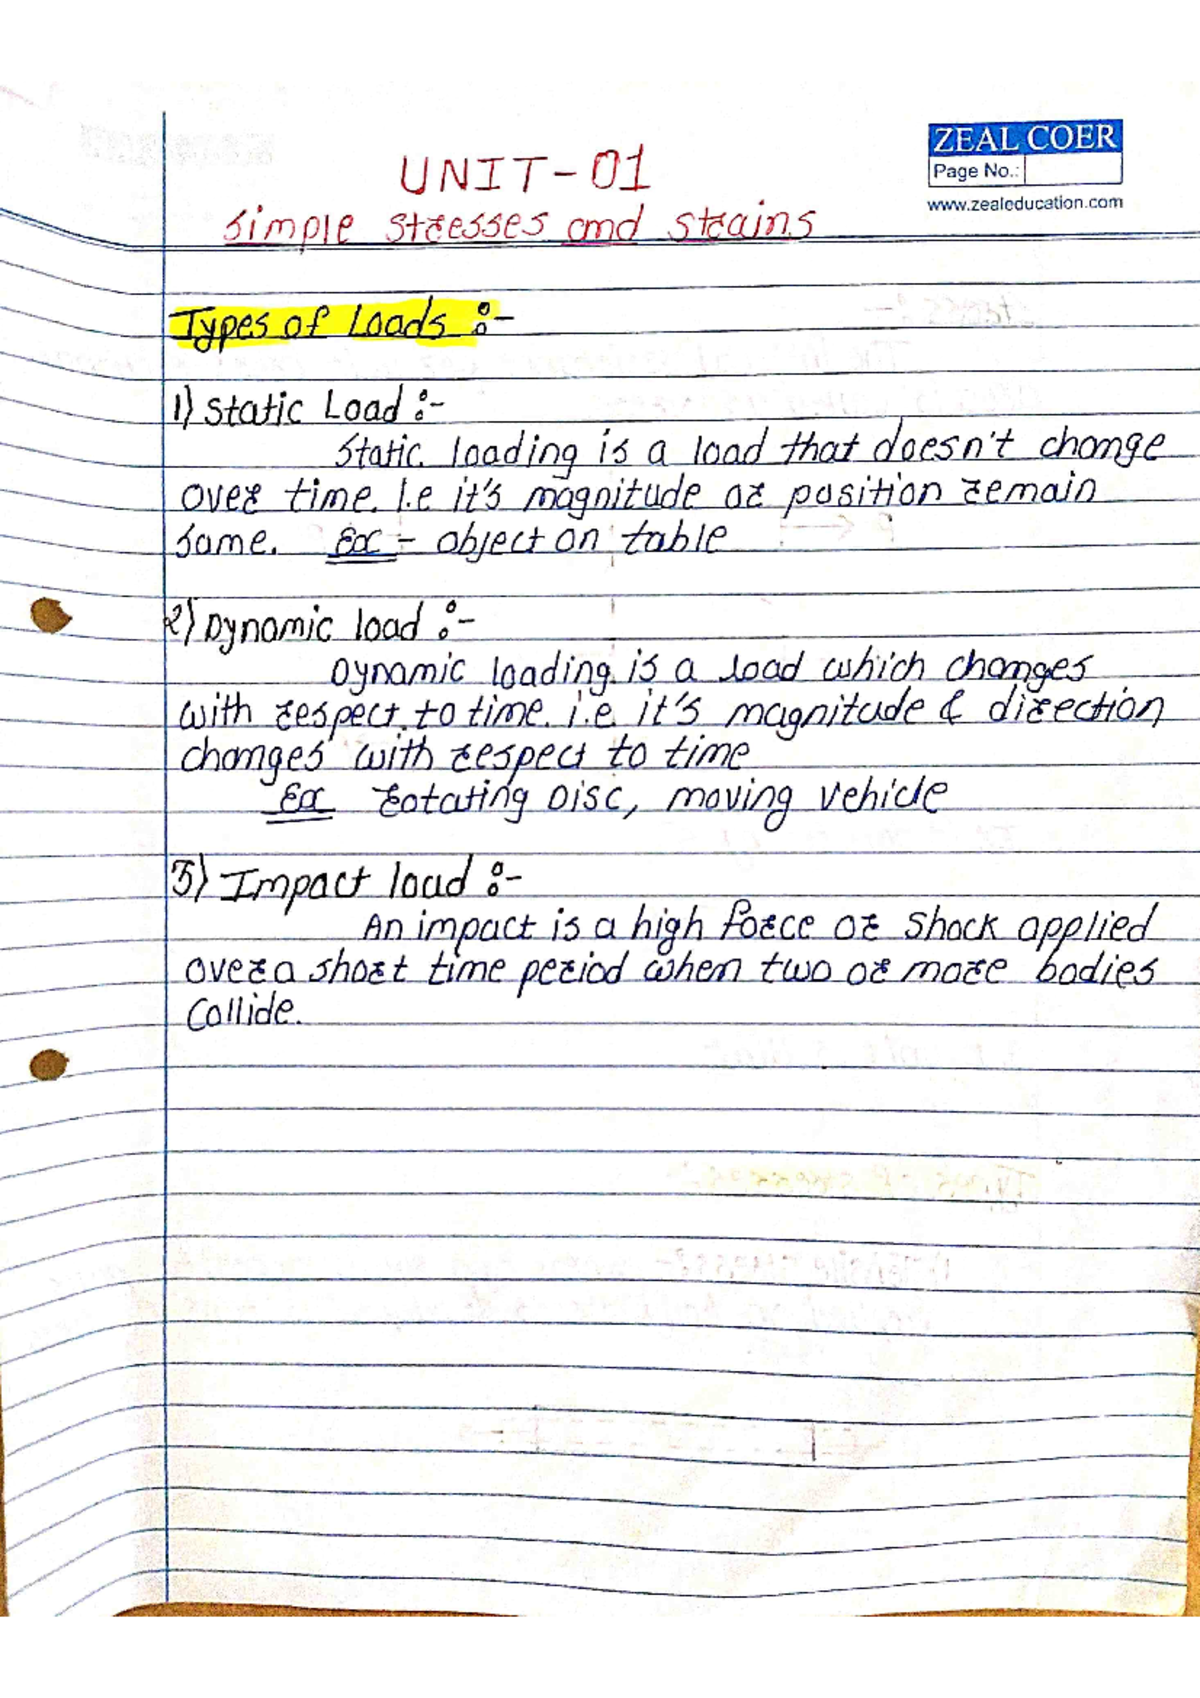 ZEAL COER
UNIT-01
Page No.:
www.zealeducation.com
Simple stresses and strains
Types of Loads :-
1) Static Load :-
Static loading is a load that doesn't change
over time. I.e it's magnitude or position remain
same. Ex - object on table
2) Dynamic load :-
Dynamic loading is a load which changes
with respect to time. i.e. it's magnitude & direction
changes with respect to time
Ex rotating Disc, moving vehicle
3) Impact load :-
An impact is a high force or shock applied
over a short time period when two or more bodies
collide.